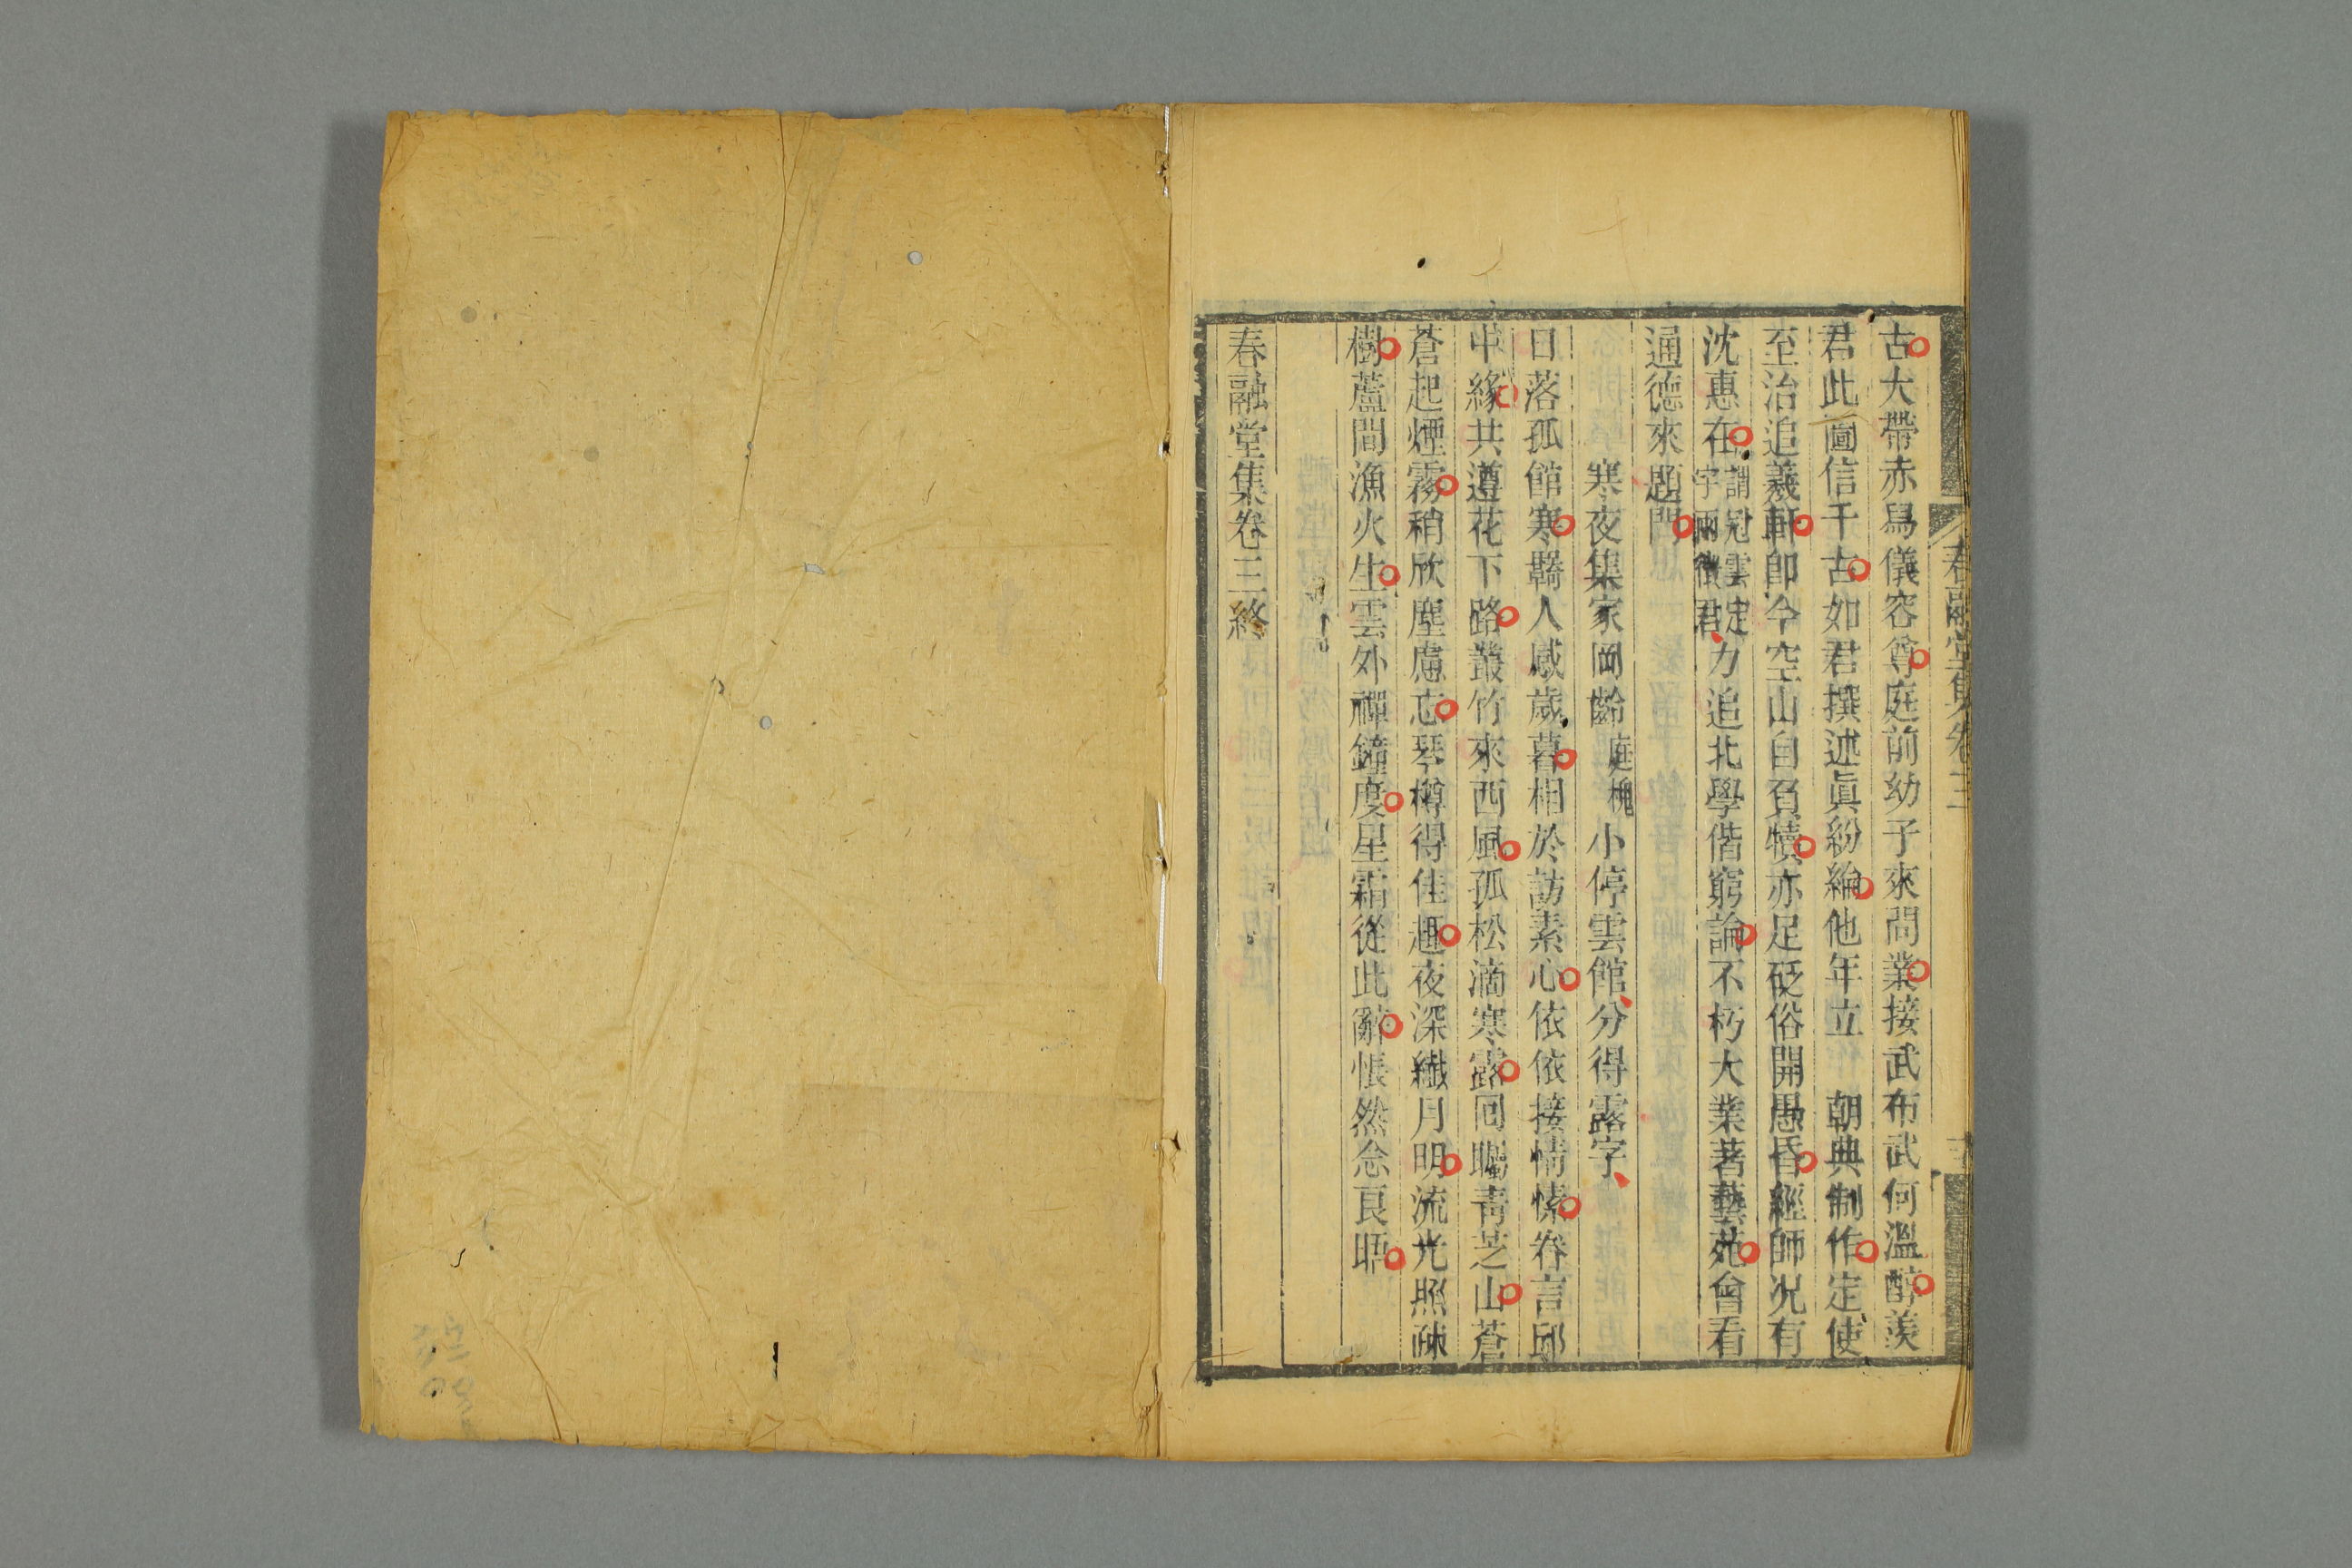 古大帶赤舄儀容尊庭前幼子來問業接武布武何溫醇羨
君此圖信千古如君撰述眞紛綸他年立　朝典制作定使
至治追羲軒卽今空山自負犢亦足砭俗開愚昏經師況有
沈惠在謂冠雲定宇兩徵君力追北學偕窮論不朽大業著藝苑會看
通德來題門
寒夜集家岡齡庭槐小停雲館分得露字
日落孤館寒羇人感歲暮相於訪素心依依接情愫眷言邱
中緣共遵花下路叢竹來西風孤松滴寒露回矚靑芝山蒼
蒼起煙霧稍欣塵慮忘琴樽得佳趣夜深纖月明流光照疎
樹蘆間漁火生雲外禪鐘度星霜從此辭悵然念良晤
春融堂集卷三終
春融堂集卷三